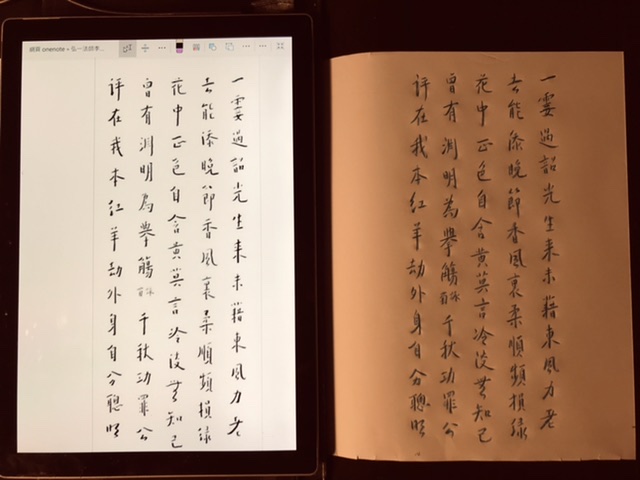 網頁 onenote • 弘一法師李...
一霎過韶光生来未藉東風力老
去能添晚節香風裏柔順頻損緑
花中正色自含黄莫言冷淡無知己
曾有淵明為擧觴 千秋功罪公
評在我本紅羊劫外身自分聰明
一霎過韶光生来未藉東風力老
去能添晚節香風裏柔順頻損緑
花中正色自含黄莫言冷淡無知己
曾有淵明為擧觴 千秋功罪公
評在我本紅羊劫外身自分聰明